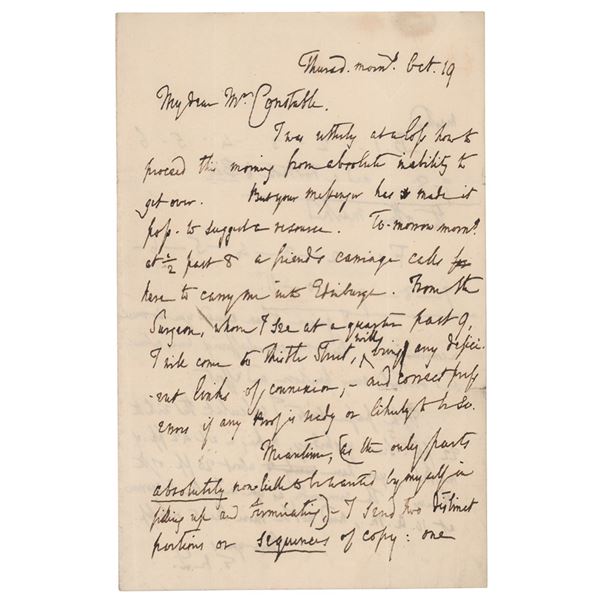 Thursd. morng. Oct. 19
My dear Mr Constable.
I was utterly at a loss how to
proceed this morning from absolute inability to
get over. But your messenger has made it
poss. to suggest a resource. To-morrow morng.
at ½ past 8 a friend's carriage calls
here to carry me into Edinburgh. From the
Surgeon, whom I see at a quarter past 9,
I will come to Thistle Street, will bring any defici-
ent links of connexion, – and correct press
errors if any Proof is ready or likely to be so.
Meantime, (as the only parts
absolutely to be wanted by myself in
filling up and terminating) – I send two distinct
portions or sequences of copy: one